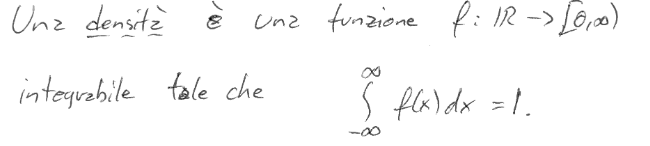 Una densità è una funzione f: ℝ → [0,∞)
integrabile tale che ∫_{-∞}^{∞} f(x) dx = 1.